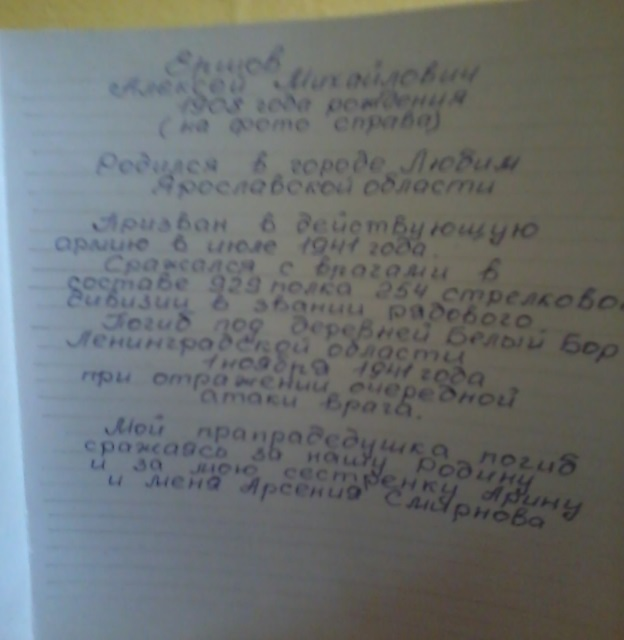 Ершов
Алексей Михайлович
1908 года рождения
(на фото справа)
Родился в городе Любим
Ярославской области
Призван в действующую
армию в июле 1941 года.
Сражался с врагами в
составе 929 полка 254 стрелковой
дивизии в звании рядового
Погиб под деревней Белый Бор
Ленинградской области
1 ноября 1941 года
при отражении очередной
атаки врага.
Мой прапрадедушка погиб
сражаясь за нашу Родину
и за мою сестренку Арину
и меня Арсения Смирнова